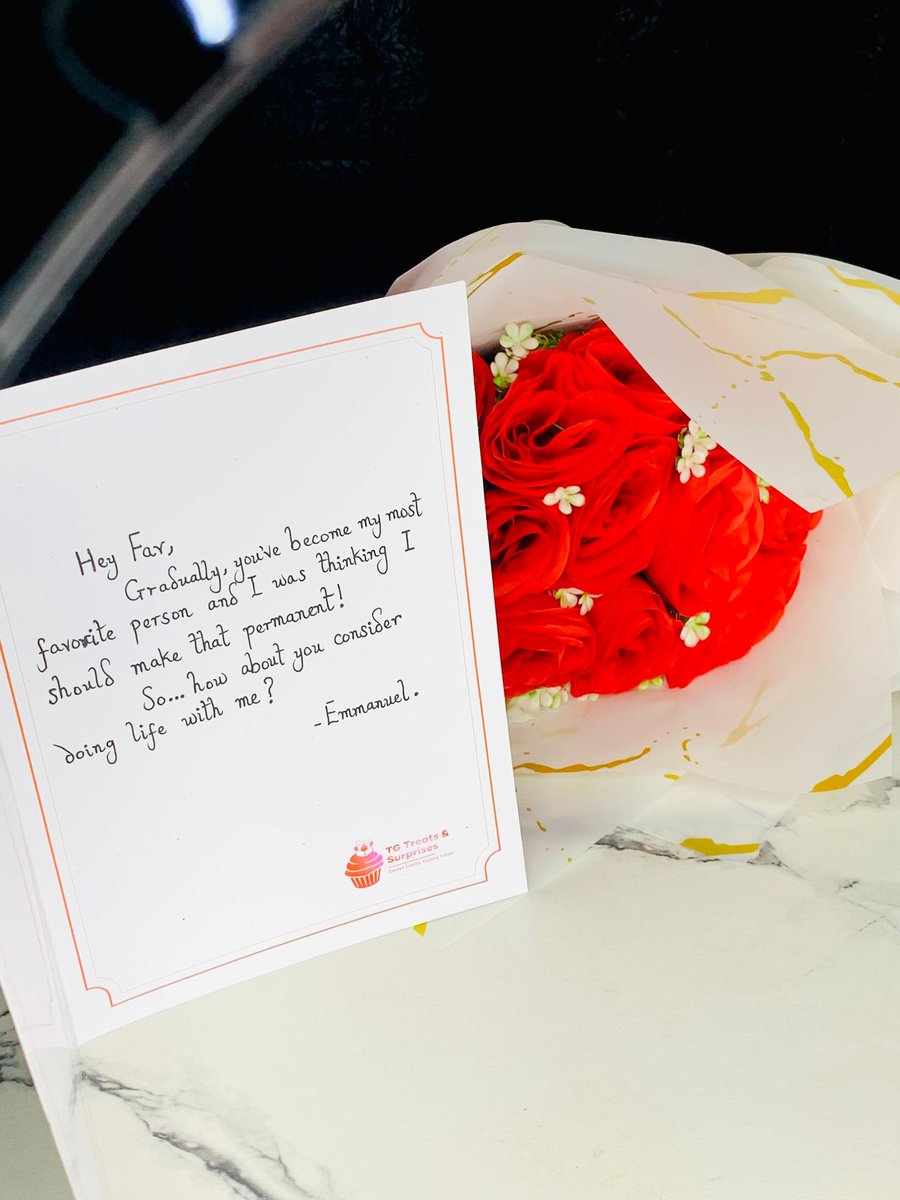 Hey Fav,
Gradually, you've become my most
favorite person and I was thinking I
should make that permanent!
So... how about you consider
doing life with me?
-Emmanuel.
TG Treats &
Surprises
Sweet treats, Happy times